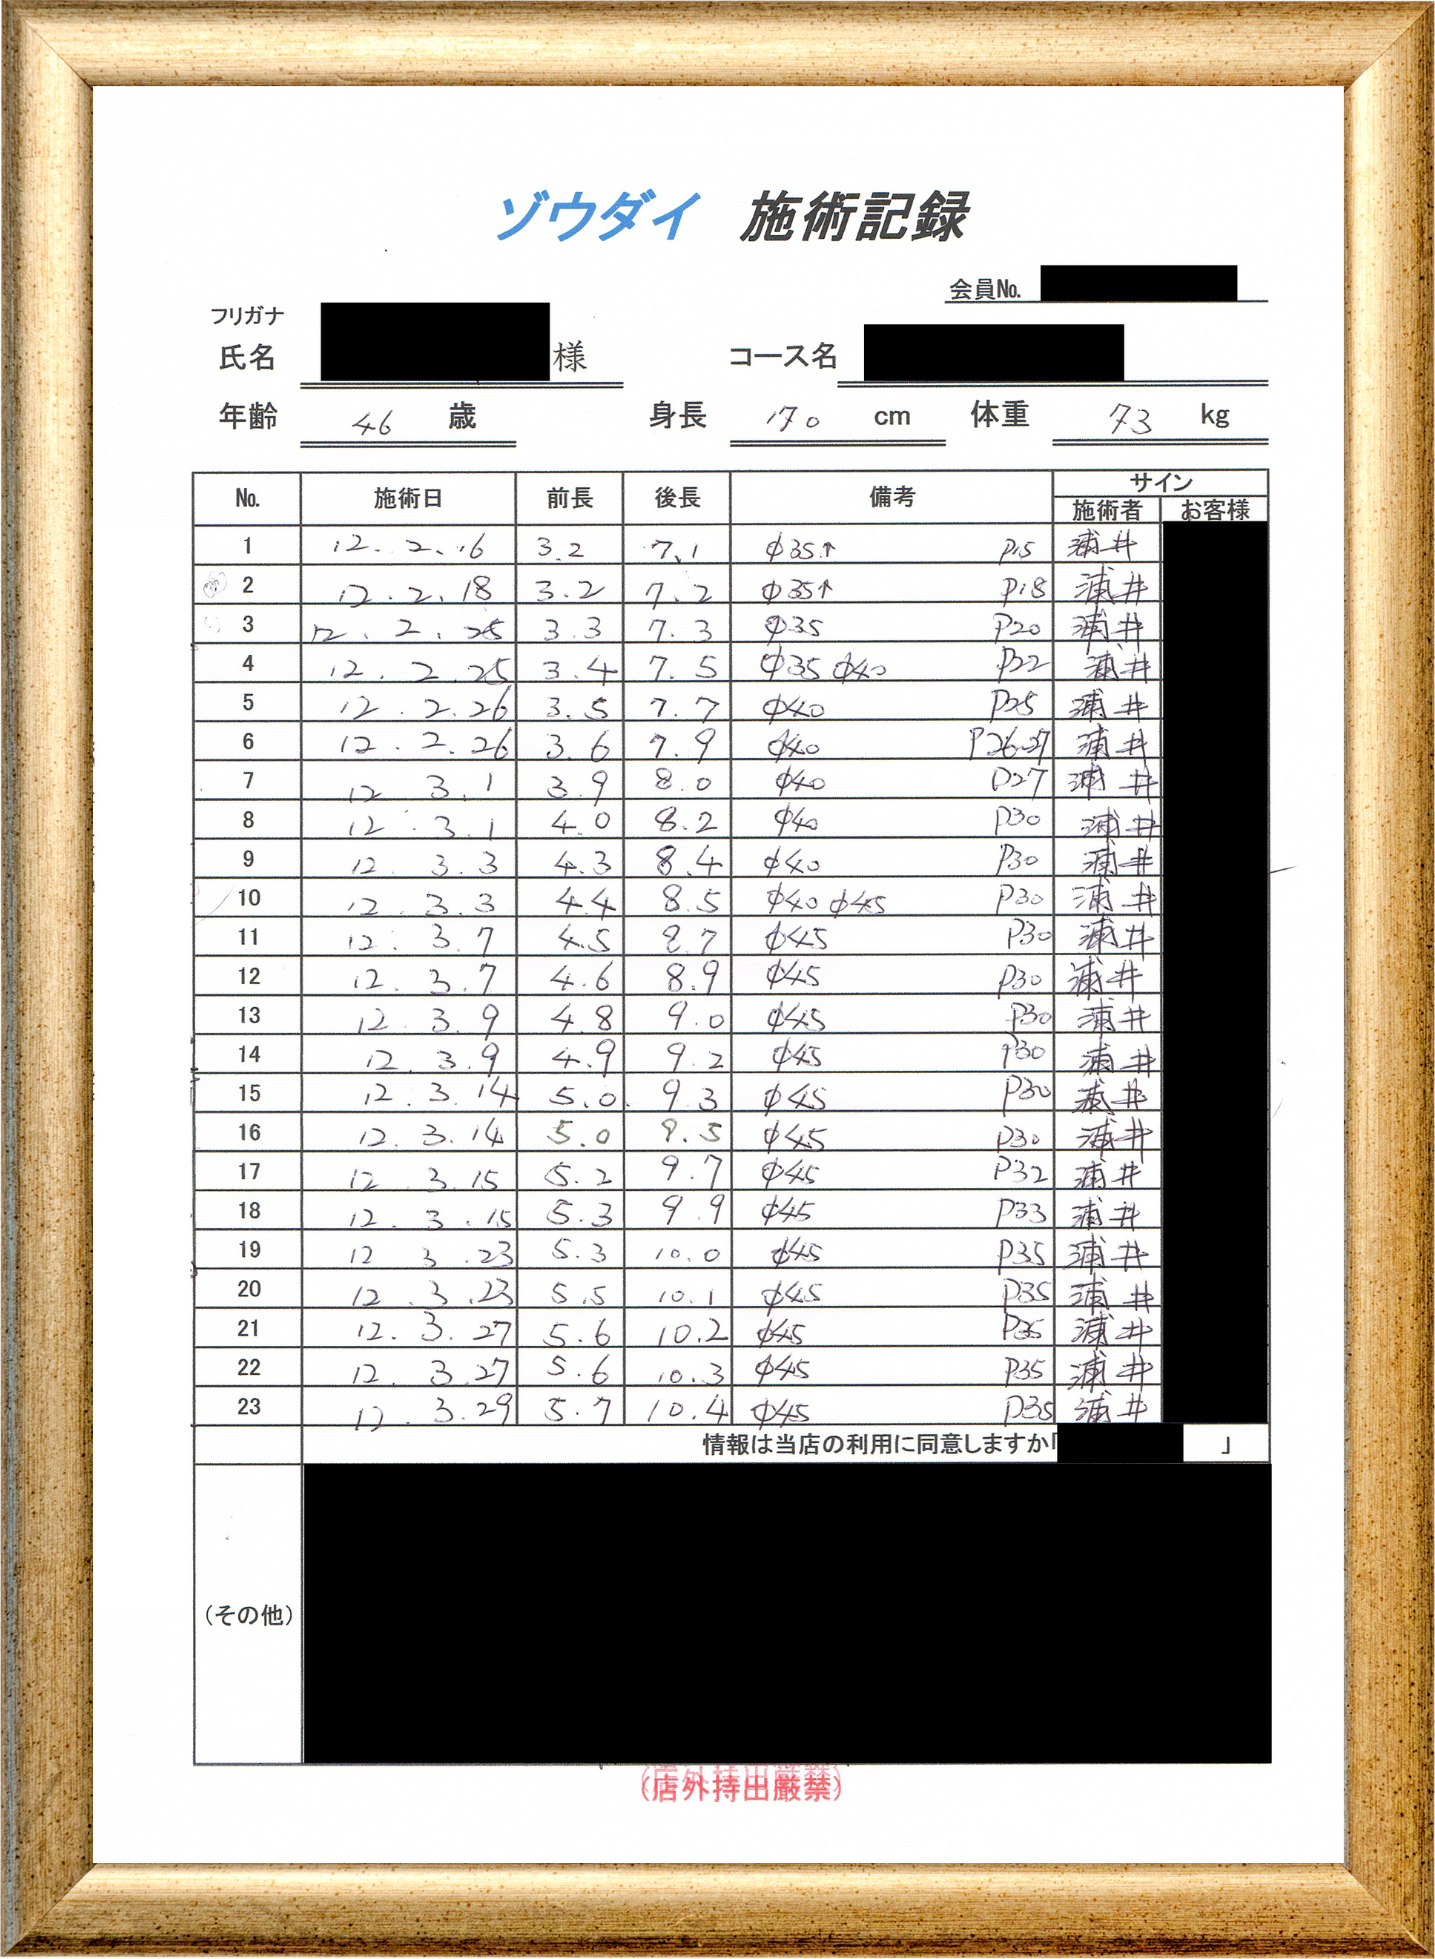 ゾウダイ 施術記録
会員№.
フリガナ
氏名 様 コース名
年齢 46 歳 身長 170 cm 体重 73 kg
№. 施術日 前長 後長 備考 サイン
施術者 お客様
1 12.2.16 3.2 7.1 φ35↑ P15 浦井
2 12.2.18 3.2 7.2 φ35↑ P18 浦井
3 12.2.25 3.3 7.3 φ35 P20 浦井
4 12.2.25 3.4 7.5 φ35 φ40 P22 浦井
5 12.2.26 3.5 7.7 φ40 P25 浦井
6 12.2.26 3.6 7.9 φ40 P26.27 浦井
7 12 3.1 3.9 8.0 φ40 P27 浦井
8 12.3.1 4.0 8.2 φ40 P30 浦井
9 12.3.3 4.3 8.4 φ40 P30 浦井
10 12.3.3 4.4 8.5 φ40 φ45 P30 浦井
11 12.3.7 4.5 8.7 φ45 P30 浦井
12 12.3.7 4.6 8.9 φ45 P30 浦井
13 12.3.9 4.8 9.0 φ45 P30 浦井
14 12.3.9 4.9 9.2 φ45 P30 浦井
15 12.3.14 5.0 9.3 φ45 P30 浦井
16 12.3.14 5.0 9.5 φ45 P30 浦井
17 12.3.15 5.2 9.7 φ45 P32 浦井
18 12.3.15 5.3 9.9 φ45 P33 浦井
19 12.3.23 5.3 10.0 φ45 P35 浦井
20 12.3.23 5.5 10.1 φ45 P35 浦井
21 12.3.27 5.6 10.2 φ45 P35 浦井
22 12.3.27 5.6 10.3 φ45 P35 浦井
23 12.3.29 5.7 10.4 φ45 P35 浦井
情報は当店の利用に同意しますか「 」
（その他）
（店外持出厳禁）